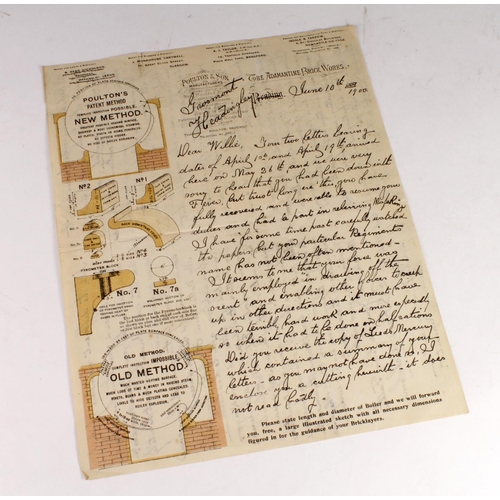 POULTON & SON
THE ADAMANTINE BRICK WORKS,
Grosmont
Headingley
June 10th
1900
Dear Willie, Your two letters bearing
date of April 1st and April 19th arrived
here on May 26th and we were very
sorry to hear that you had been down with
Fever, but trust long ere this you have
fully recovered and were able to resume your
duties and had a part in relieving Mafeking
I have for some time past carefully watched
the papers, but your particular Regiments
name has not been often mentioned -
It seems to me that your force was
mainly employed in "drawing off the
scent" and enabling other forces to creep
up in other directions and it must have
been terribly hard work and more especially
so when it had to be done on half rations
Did you receive the copy of Leeds Mercury
which contained a summary of your
letters - as you may not have done so, I
enclose you a cutting herewith - it does
not read badly.
POULTON'S
PATENT METHOD
COMPLETE INSPECTION POSSIBLE.
NEW METHOD.
No2
No1
No. 7
No. 7a
OLD METHOD.
COMPLETE INSPECTION IMPOSSIBLE.
OLD METHOD.
WHEN WASTED HEATING SURFACE.
MUCH LOSS OF TIME & MONEY IN RAISING STEAM.
RIVETS, SEAMS & MUCH PLATING CONCEALED.
LIABLE TO WIDE DEFECTS AND LEAD TO
BOILER EXPLOSION.
Please state length and diameter of Boiler and we will forward
you, free, a large illustrated sketch with all necessary dimensions
figured in for the guidance of your Bricklayers.